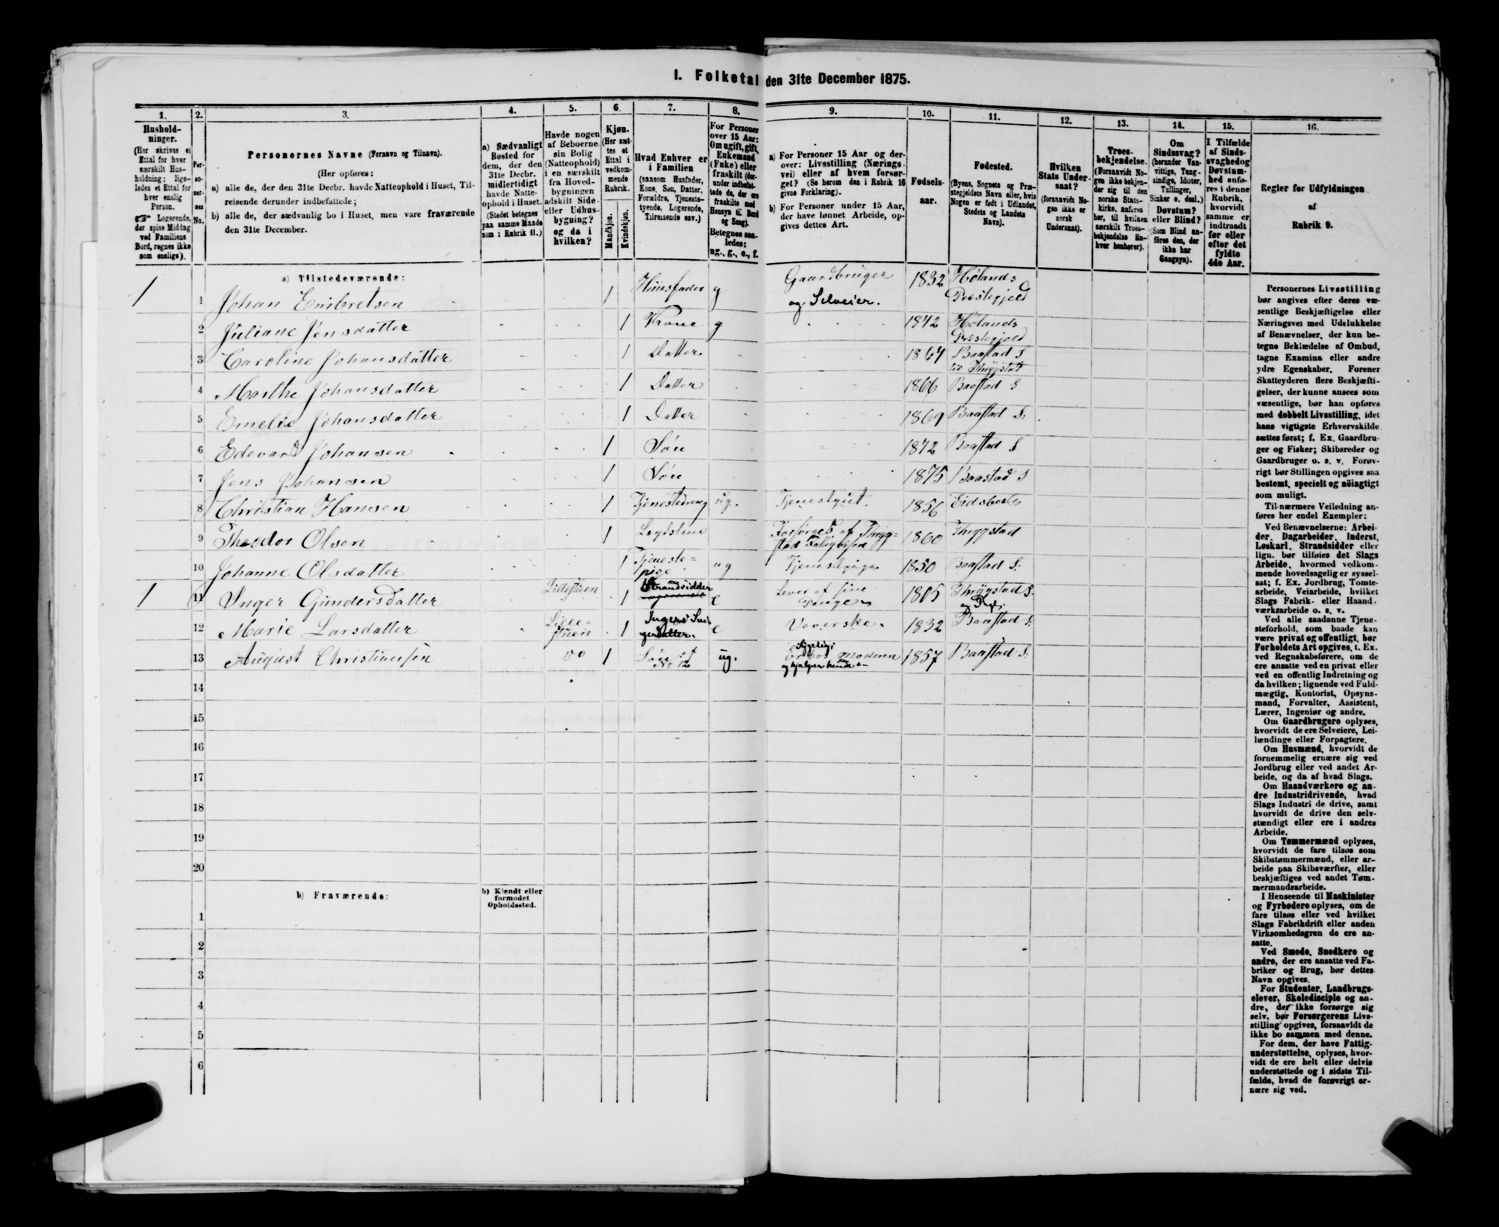 I. Folketal den 31te December 1875.
1. 2. 3. 4. 5. 6. 7. 8. 9. 10. 11. 12. 13. 14. 15. 16.
Hushold-
ninger.
(Her skrives et
Ettal for hver
særskilt Hus-
holdning; lige-
ledes et Ettal for
hver enslig
Person.
Logerende,
der spise Middag
ved Familiens
Bord, regnes ikke
som enslige).
Per-
soner-
nes
No.
Personernes Navne (Fornavn og Tilnavn).
(Her opføres:
a) alle de, der den 31te Decbr. havde Natteophold i Huset, Til-
reisende derunder indbefattede;
b) alle de, der sædvanlig bo i Huset, men vare fraværende
den 31te December.
a) Sædvanligt
Bosted for
dem, der den
31te Decbr.
midlertidigt
havde Natte-
ophold i Huset.
(Stedet betegnes
paa samme Maade
som i Rubrik 11.)
Havde nogen
af Beboerne
sin Bolig
(Natteophold)
i en særskilt
fra Hoved-
bygningen
adskilt Side-
eller Udhus-
bygning?
og da i
hvilken?
Kjøn.
(Her sæt-
tes et
Ettal i
vedkom-
mende
Rubrik.
Mandkjøn.
Kvindekjøn.
Hvad Enhver er
i Familien
(saasom Husfader,
Kone, Søn, Datter,
Forældre, Tjeneste-
tyende, Logerende,
Tilreisende osv.)
For Personer
over 15 Aar:
Om ugift, gift,
Enkemand
(Enke) eller
fraskilt (der-
under indbefat-
tede de, der ere
fraskilte med
Hensyn til Bord
og Seng).
Betegnes saa-
ledes:
ug., g., e., f.
a) For Personer 15 Aar og der-
over: Livsstilling (Nærings-
vei) eller af hvem forsør-
get? (Se herom den i Rubrik 16
givne Forklaring).
b) For Personer under 15 Aar,
der have lønnet Arbeide, op-
gives dettes Art.
Fødsels-
aar.
Fødested.
(Byens, Sognets og Præ-
stegjeldets Navn eller, hvis
Nogen er født i Udlandet,
Stedets og Landets
Navn).
Hvilken
Stats Under-
saat?
(forsaavidt No-
gen ikke er
norsk
Undersaat).
Troes-
bekjendelse.
(Forsaavidt No-
gen ikke bekjen-
der sig til den
norske Stats-
kirke, anføres
her, til hvilken
særskilt Troes-
bekjendelse En-
hver henhører).
Om
Sindssvag?
(herunder Van-
vittige, Tung-
sindige, Idioter,
Tullinger,
Sinker o. desl.)
Døvstum?
eller Blind?
(Som Blind an-
føres den, der
ikke har
Gangsyn).
I Tilfælde
af Sinds-
svaghed og
Døvstum-
hed anfø-
res i denne
Rubrik,
hvorvidt
samme er
indtraadt
før eller
efter det
fyldte
4de Aar.
Regler for Udfyldningen
af
Rubrik 9.
a) Tilstedeværende:
1 1 Johan Embretsen 1 Huusfader g Gaardbruger og Selveier. 1832 Hølands Præstegjeld
2 Juliane Jensdatter 1 Kone g 1842 Hølands Præstegjeld
3 Caroline Johansdatter 1 Datter 1864 Baastad S til Thrygstad
4 Marthe Johansdatter 1 Datter 1866 Baastad S
5 Emelie Johansdatter 1 Datter 1869 Baastad S:
6 Edevard Johansen 1 Søn 1872 Baastad S
7 Jens Johansen 1 Søn 1875 Baastad S
8 Christian Hansen 1 Tjenestedreng ug. Tjenestgut. 1856 Eidsberg
9 Theodor Olsen 1 Lægdslem Forsørges af Thrygstad Fattigvæsen 1860 Thrygstad
10 Johanne Olsdatter 1 Tjenestepige ug Tjenestpige 1850 Baastad S:
1 11 Inger Gundersdatter Sidestuen 1 Strandsidder e Lever af sine Penger 1805 Thrygstad S. og Præ.
12 Marie Larsdatter Sidestuen 1 Ingers Svigerdatter. e Væverske. 1832 Baastad S:
13 August Christiansen do 1 Søn af No 12 ug. Moderen og hjelper hende 1857 Baastad S:
14
15
16
17
18
19
20
b) Fraværende:
b) Kjendt eller
formodet
Opholdssted.
1
2
3
4
5
6
Personernes Livsstilling
bør angives efter deres væ-
sentlige Beskjæftigelse eller
Næringsvei med Udelukkelse
af Benævnelser, der kun be-
tegne Beklædelse af Ombud,
tagne Examina eller andre
ydre Egenskaber. Forener
Skatteyderen flere Beskjæfti-
gelser, der kunne ansees som
væsentlige, bør han opføres
med dobbelt Livsstilling, idet
hans vigtigste Erhvervskilde
sættes først; f. Ex. Gaardbru-
ger og Fisker; Skibsreder og
Gaardbruger o. s. v. Forøv-
rigt bør Stillingen opgives saa
bestemt, specielt og nøiagtigt
som muligt.
Til nærmere Veiledning an-
føres her endel Exempler:
Ved Benævnelserne: Arbei-
der, Dagarbeider, Inderst,
Løskarl, Strandsidder eller
lign. bør tilføies det Slags
Arbeide, hvormed vedkom-
mende hovedsagelig er syssel-
sat; f. Ex. Jordbrug, Tomte-
arbeide, Veiarbeide, hvilket
Slags Fabrik- eller Haand-
værksarbeide o. s. v.
Ved alle saadanne Tjene-
steforhold, som baade kan
være privat og offentligt, bør
Forholdets Art opgives, t. Ex.
ved Regnskabsførere, om de
ere ansatte ved en privat eller
ved en offentlig Indretning og
da hvilken; lignende ved Fuld-
mægtig, Kontorist, Opsyns-
mand, Forvalter, Assistent,
Lærer, Ingeniør og andre.
Om Gaardbrugere oplyses,
hvorvidt de ere Selveiere, Lei-
lændinge eller Forpagtere.
Om Husmænd, hvorvidt de
fornemmelig ernære sig ved
Jordbrug eller ved andet Ar-
beide, og da af hvad Slags.
Om Haandværkere og an-
dre Industridrivende, hvad
Slags Industri de drive, samt
hvorvidt de drive den selv-
stændigt eller ere i andres
Arbeide.
Om Tømmermænd oplyses,
hvorvidt de fare tilsøs som
Skibstømmermænd, eller ar-
beide paa Skibsværfter, eller
beskjæftiges ved andet Tøm-
mermandsarbeide.
I Henseende til Maskinister
og Fyrbødere oplyses, om de
fare tilsøs eller ved hvilket
Slags Fabrikdrift eller anden
Virksomhedsgren de ere an-
satte.
Ved Smede, Snedkere og
andre, der ere ansatte ved Fa-
briker og Brug, bør dettes
Navn opgives.
For Studenter, Landbrugs-
elever, Skoledisciple og an-
dre, der ikke forsørge sig
selv, bør Forsørgerens Livs-
stilling opgives, forsaavidt de
ikke bo sammen med denne.
For dem, der have Fattig-
understøttelse, oplyses, hvor-
vidt de ere helt eller delvis
understøttede og i sidste Til-
fælde, hvad de forøvrigt er-
nære sig ved.